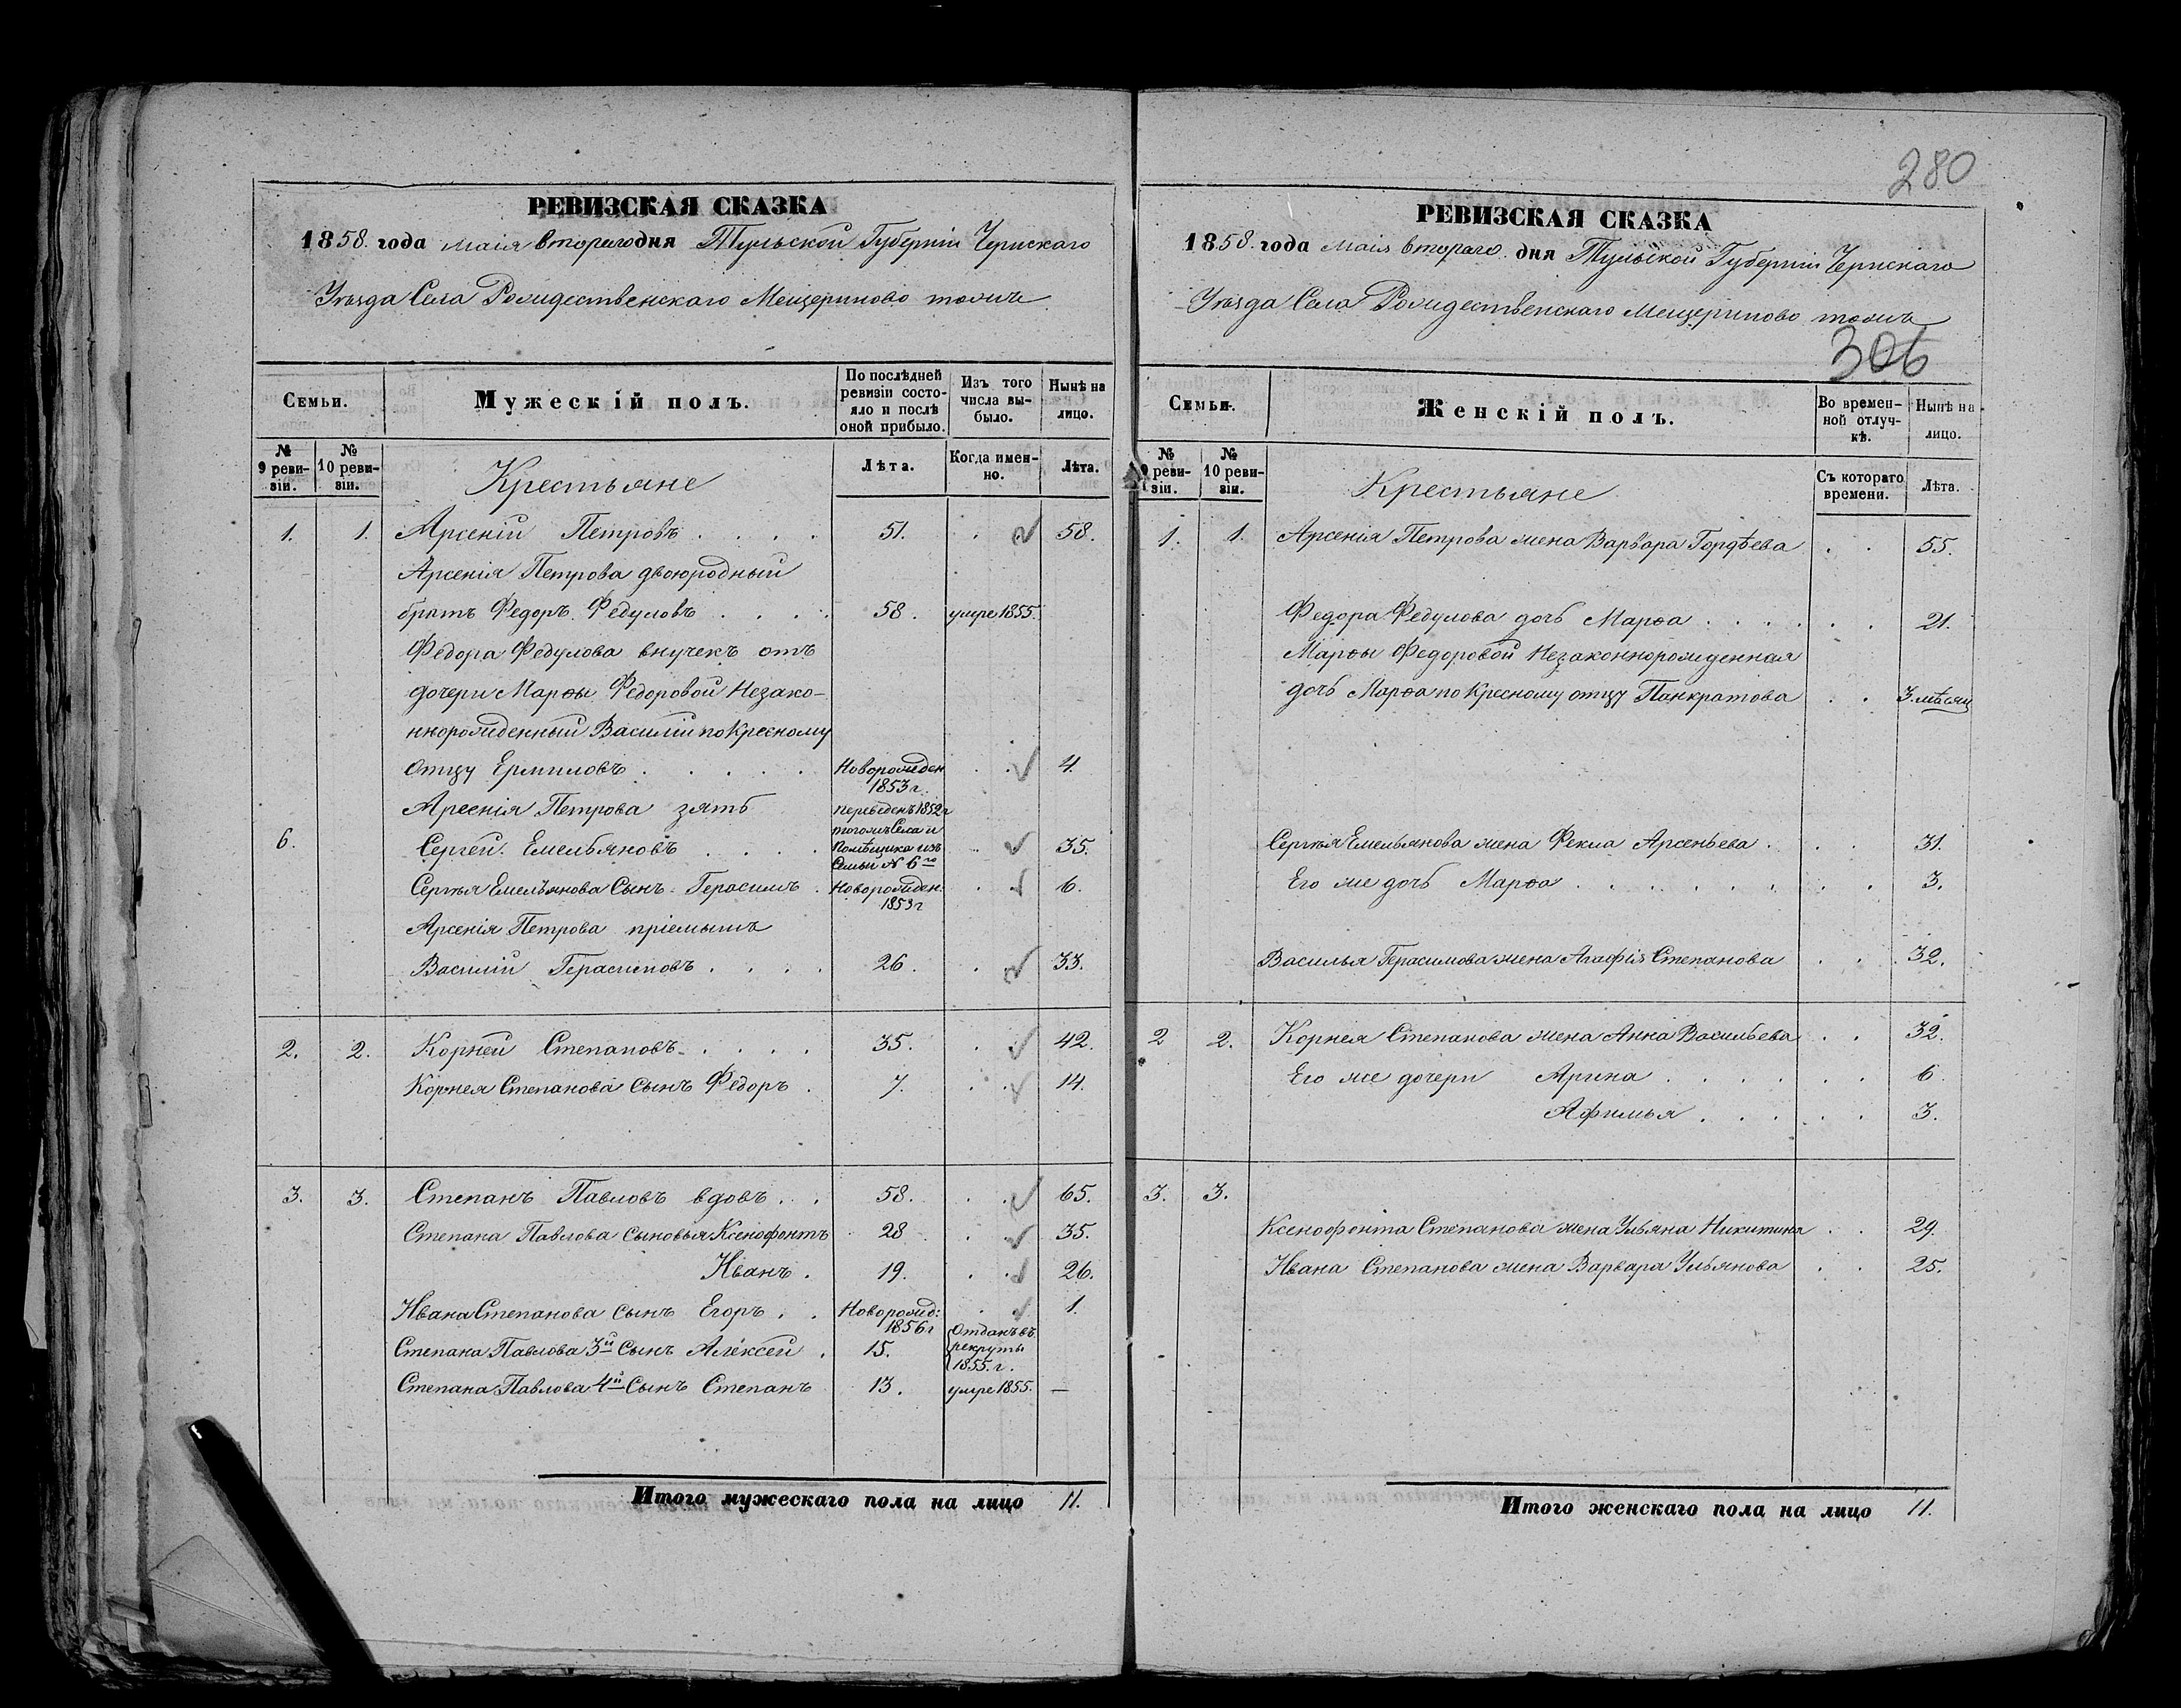 РЕВИЗСКАЯ СКАЗКА
1858. года маія втораго дня Тульской Губерніи Чернскаго
Уѣзда Села Рождественскаго Мещериново тожъ
Семьи.
Мужескій полъ.
По послѣдней ревизіи состояло и послѣ оной прибыло.
Изъ того числа выбыло.
Нынѣ на лицо.
№ 9 ревизіи.
№ 10 ревизіи.
Крестьяне
Лѣта.
Когда именно.
Лѣта.
1. 1. Арсеній Петровъ . . . . 51. 58.
Арсенія Петрова двоюродный
братъ Федоръ Федуловъ . . . . 58. умре 1855.
Федора Федулова внучекъ отъ
дочери Марѳы Федоровой Незако-
ннорожденный Василій по Кресному
отцу Ермиловъ . . . . . Новорожден 1853 г. 4.
Арсенія Петрова зять переведенъ 1852 г
6. Сергей Емельяновъ . . . . тогожъ Села и Помѣщика изъ Семьи № 6го 35.
Сергѣя Емельянова Сынъ Герасимъ . Новорожден. 1853 г 6.
Арсенія Петрова пріемышъ
Василій Герасимовъ . . . . 26. 33.
2. 2. Корней Степановъ . . . . 35. 42.
Корнея Степанова Сынъ Федоръ . 7. 14.
3. 3. Степанъ Павловъ вдовъ . . 58. 65.
Степана Павлова Сыновья Ксенофонтъ 28 35.
Иванъ . 19. 26.
Ивана Степанова Сынъ Егоръ . . Новорожд: 1856 г 1.
Степана Павлова 3й Сынъ Алексей . 15. Отданъ въ рекруты 1855. г.
Степана Павлова 4й Сынъ Степанъ 13. умре 1855. —
Итого мужескаго пола на лицо 11.
280
РЕВИЗСКАЯ СКАЗКА
1858. года маія втораго дня Тульской Губерніи Чернскаго
Уѣзда Села Рождественскаго Мещериново тожъ
306
Семьи.
Женскій полъ.
Во временной отлучкѣ.
Нынѣ на лицо.
№ 9 ревизіи.
№ 10 ревизіи.
Крестьяне
Съ котораго времени.
Лѣта.
1. 1. Арсенія Петрова жена Варвара Гордѣева . . 55.
Федора Федулова дочь Марѳа . . . . . . 21.
Марѳы Федоровой Незаконнорожденная
дочь Марѳа по Кресному отцу Панкратова . . 3 мѣсяц
Сергѣя Емельянова жена Фекла Арсеньева . . . 31.
Его же дочь Марѳа . . . . . . . . 3.
Василья Герасимова жена Агафія Степанова . . 32.
2 2. Корнея Степанова жена Анна Васильева . . 32.
Его же дочери Арина . . . . . . 6.
Афимья . . . . . 3.
3. 3.
Ксенофонта Степанова жена Ульяна Никитина . . 29.
Ивана Степанова жена Варвара Ульянова . . 25.
Итого женскаго пола на лицо 11.